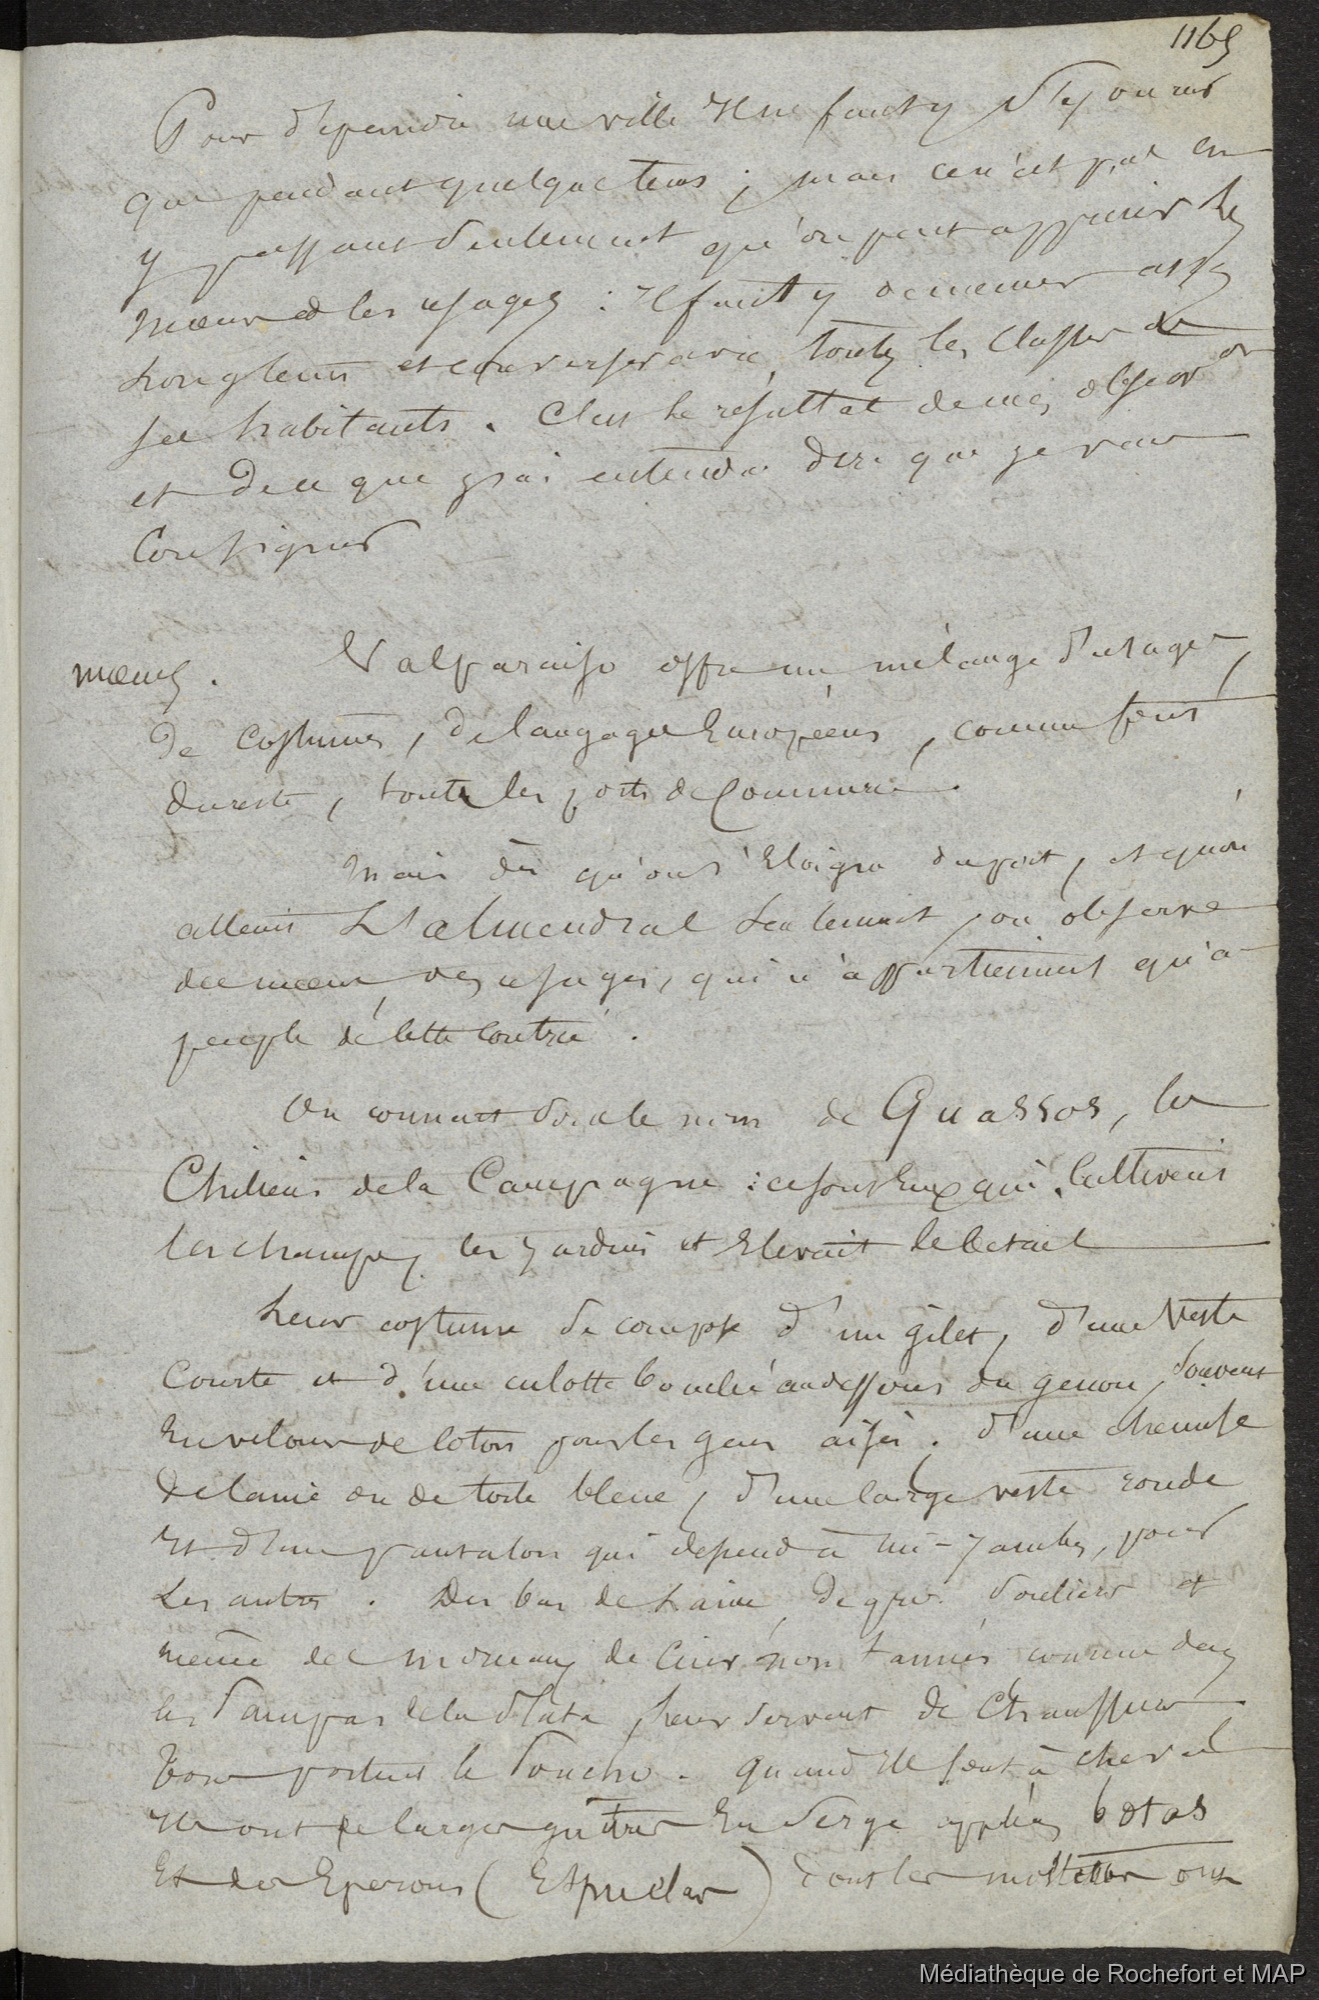 1165
Pour dépeindre une ville il ne faut y séjourner
que pendant quelque tems ; mais ce n'est pas en
y passant seulement qu'on peut apprécier les
mœurs et les usages : il faut y demeurer assez
longtems et converser avec toutes les classes de
ses habitants . C'est le résultat de mes observ on
et de ce que j'ai entendu dire que je vais
Consigner
mœurs . Valparaiso offre un mélange d'usages,
de costumes, de langages Européens, comme font
du reste, toute les ports de Commerce .
Mais dès qu'on s'Eloigne du port, et qu'on
atteint L'almendral seulement, on observe
des mœurs, des usages, qui n'appartiennent qu'a
peuple de cette contrée .
On connait sous le nom de Guassos, les
Chiliens de la Campagne : ce sont Eux qui cultivent
les champs, les jardins et Elevent le betail
Leur costume se compose d'un gilet, d'une veste
Courte et d'une culotte bouclée au dessous du genou, souvent
En velour de Coton pour les gens aisés . d'une chemise
de laine ou de toile bleue, d'une large veste ronde
et d'un pantalon qui descend à mi-jambes, pour
Les autres . Des bas de Laine, de gros souliers et
même des morceaux de Cuir non tannés comme dans
les Pampas de la Plata, leur servent de Chaussures
tous portent le Poncho . quand ils sont à cheval
ils ont de larges guêtres En Serge appelés botas
Et des Eperons ( Espuelas ) dont les mollettes ont
Médiathèque de Rochefort et MAP